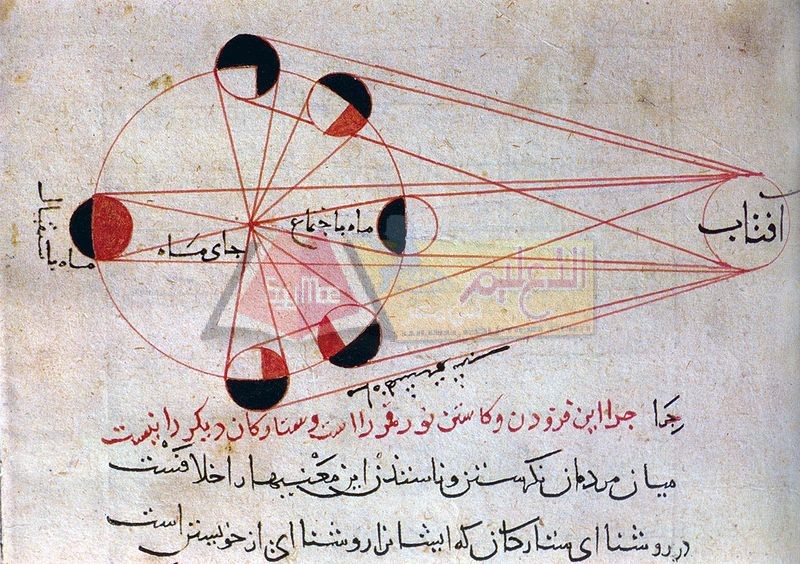 آفتاب
ماه باجتماع
جای ماه
ماه باستقبال
چرا چرا این فزودن و کاستن نور قمر را است و ستارگان دیگر را نیست
میان مردمان نگرستن و این معنیها را اخلافست
در روشنای ستارگان که ایشانرا روشنای از خویشتن است